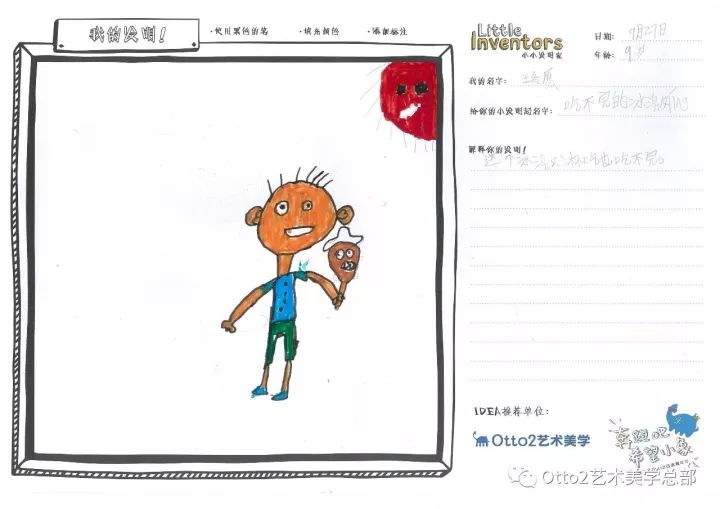 我的发明！
·使用黑色的笔 ·填充颜色 ·添加标注
Little
Inventors
小小发明家
日期: 9月27日
年龄: 9岁
我的名字:
给你的小发明起名字: 吃不完的冰淇淋
解释你的发明!
这个冰淇淋
吃也吃不完。
IDEA推荐单位:
Otto2艺术美学
希望小象
Otto2艺术美学总部